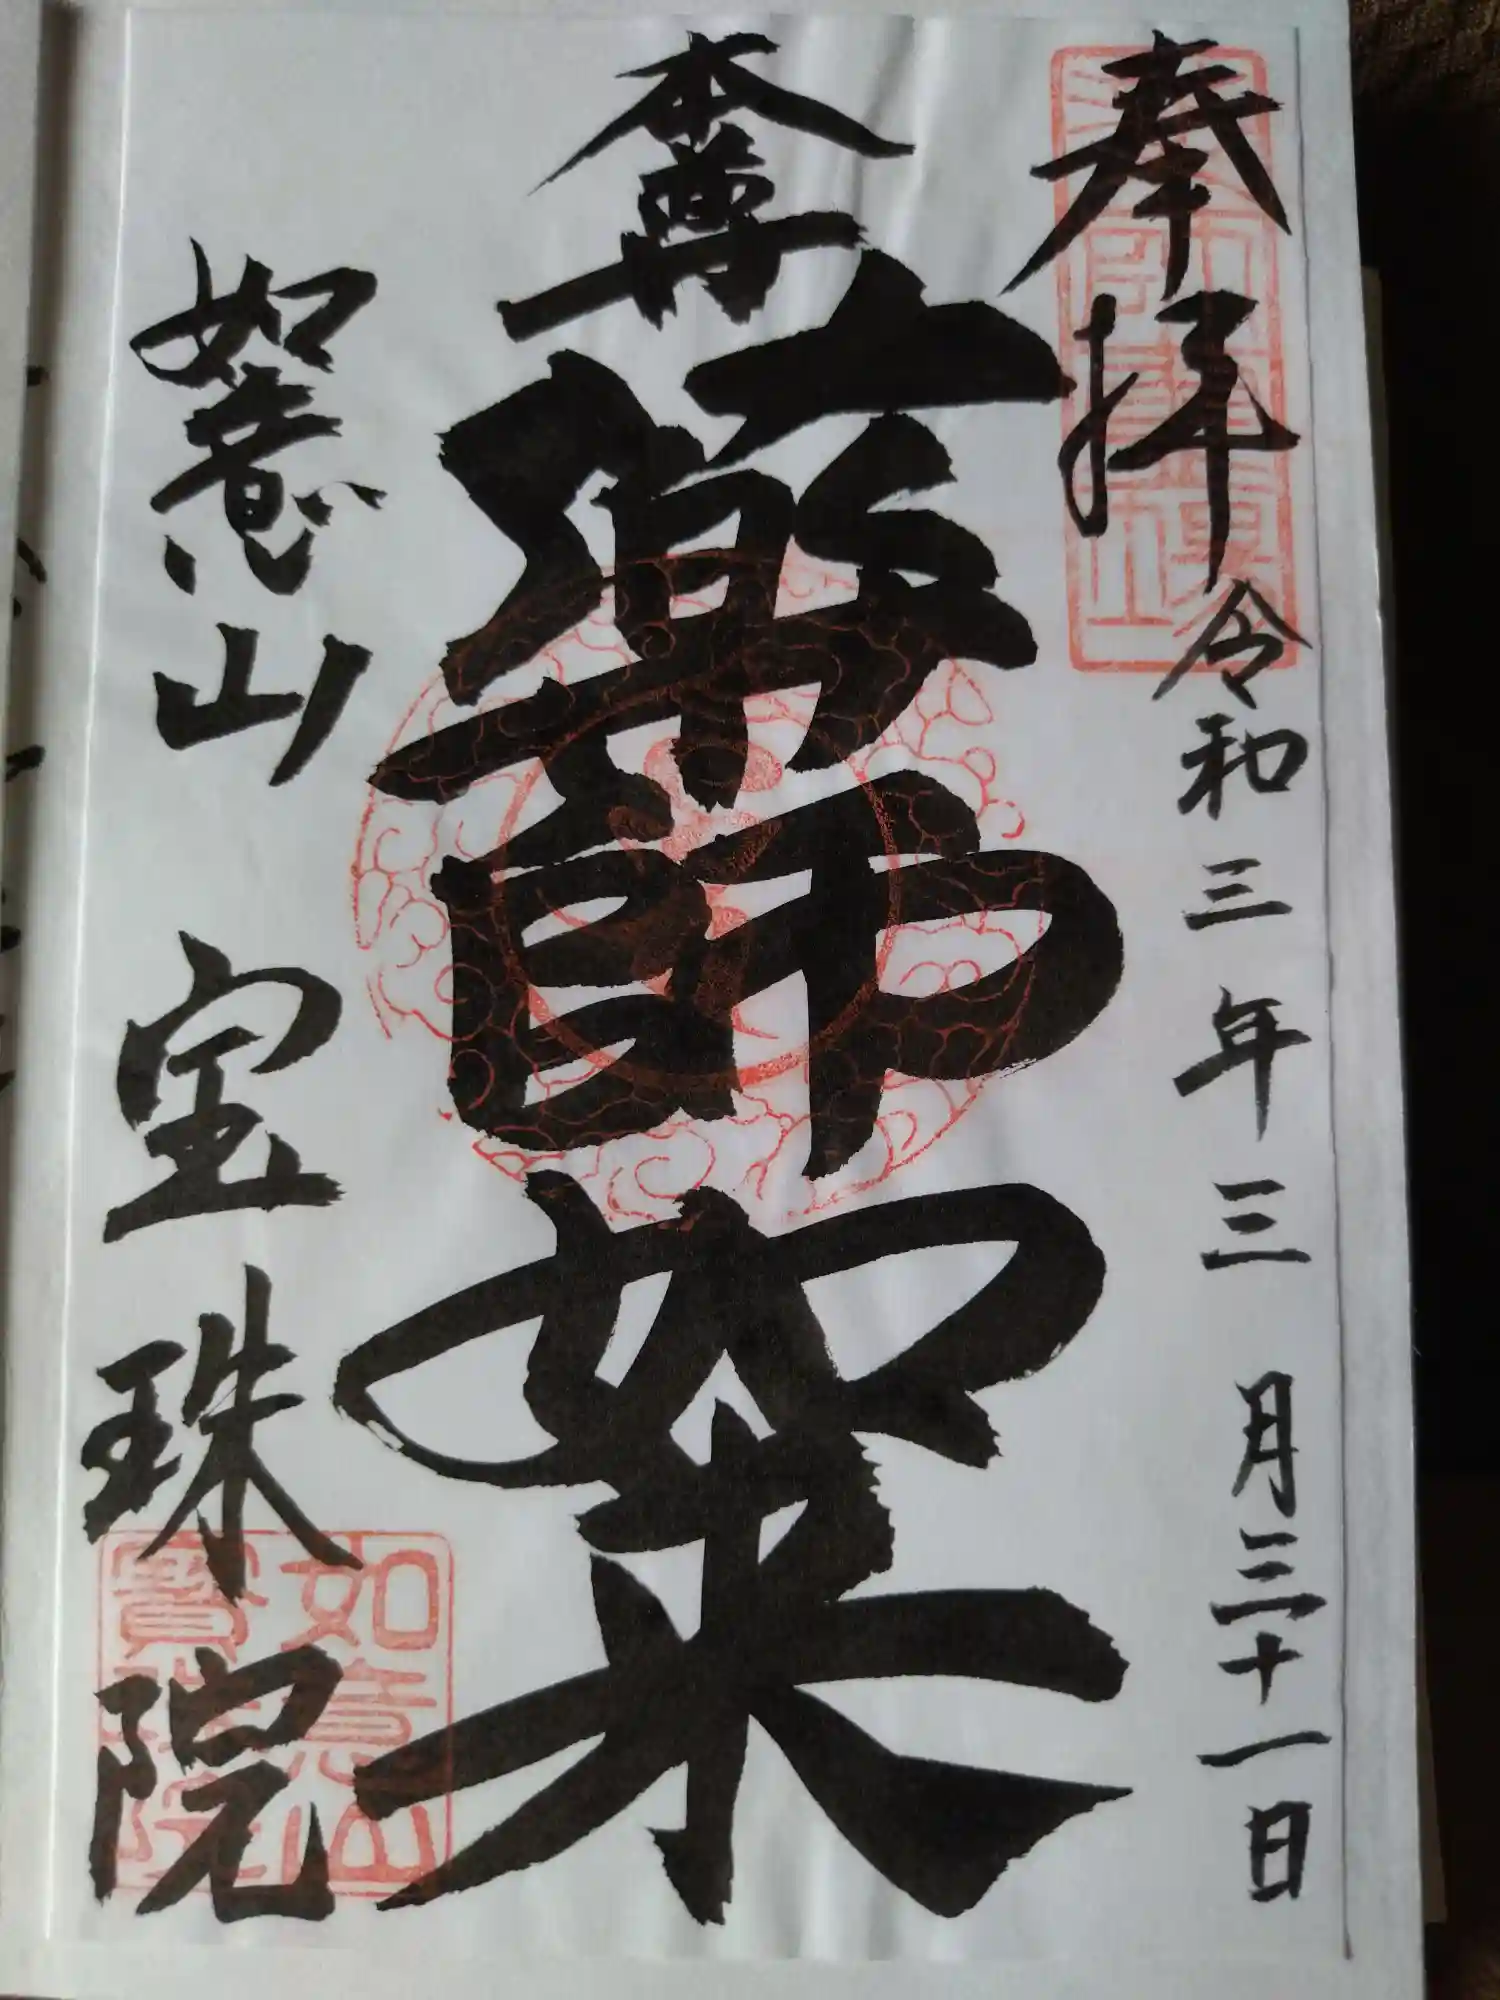 奉拝
令和三年三月三十一日
本尊
薬師如来
如意山
宝珠院
如意山
寳珠院